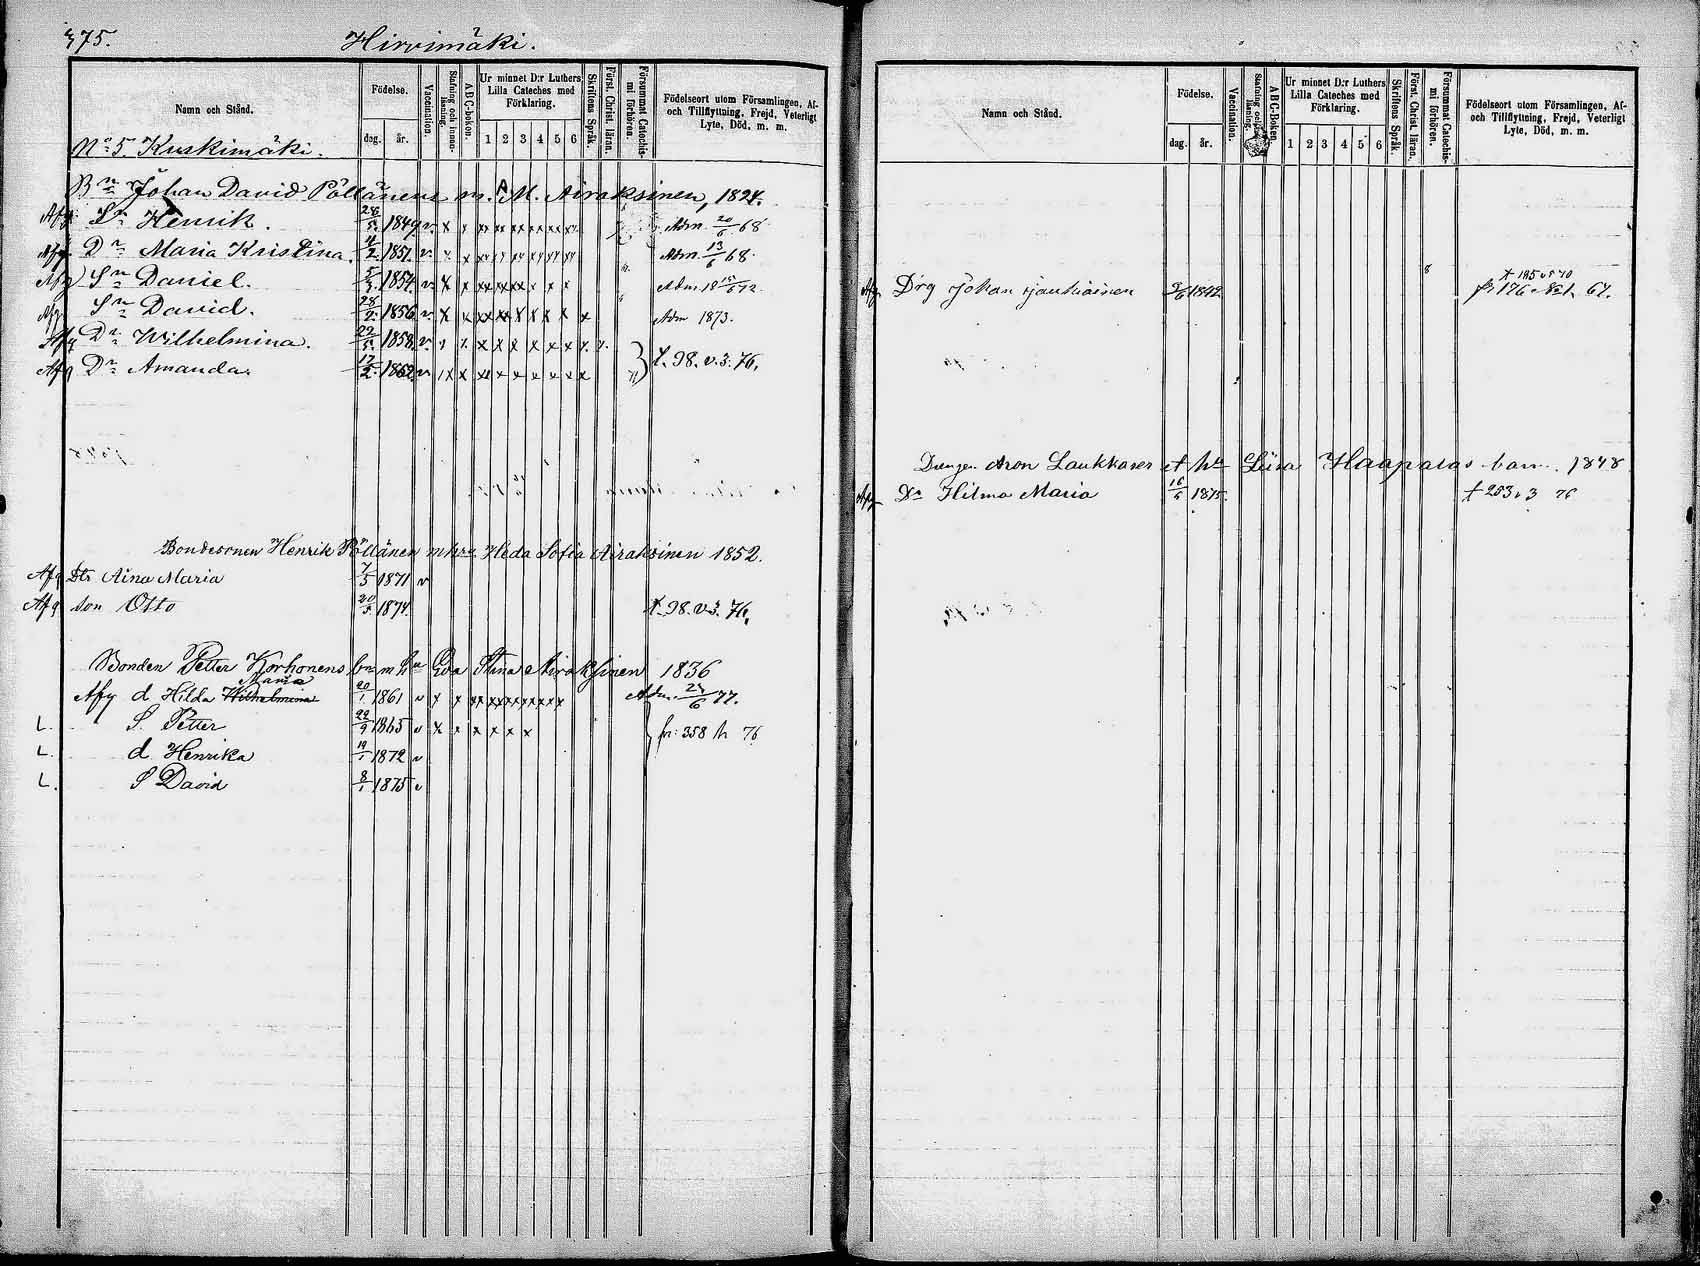 375. Hirvimäki.
Namn och Stånd.
Födelse.
dag. år.
Vaccination.
Stafning och innan-läsning.
A B C-boken.
Ur minnet D:r Luthers Lilla Cateches med Förklaring.
1 2 3 4 5 6
Skriftens Språk.
Först. Christ. läran.
Försummat Catechis-mi förhören.
Födelseort utom Församlingen, Af- och Tillflyttning, Frejd, Veterligt Lyte, Död, m. m.
No 5 Kuskimäki.
Bn Johan David Pöllänens m. A. M. Airaksinen, 1824.
Afg Sn Henrik. 28/5. 1849. v. x x xx xx xx xx xx xx Adm 20/6 68
Afg. Dn Maria Kristina. 4/2. 1851. v. Adm. 13/6 68.
Afg Sn Daniel. 5/3. 1854. v. x x x x x x x x Adm 18 15/6 72
Afg Sn David. 28/2. 1856. v. x x xx xx x x x x x Adm 1873.
Afg Dn Wilhelmina. 22/5. 1858. v. x x x x x x
Afg Dn Amanda. 17/2. 1862. v. x x x x x x x x x } t. 98. v. 3. 76.
Bondesonen Henrik Pöllänen m hru Heda Sofia Airaksinen 1852.
Afg Dtr Aina Maria 7/5 1871 v
Afg son Otto 20/5. 1874. t. 98. v. 3. 76.
Bonden Petter Korhonens bn m hu Eva Stina Airaksinen 1836
Maria
Afg d Hilda Wilhelmina 20/1 1861 v x x xx xx xx x x x x Adm. 24/6 77.
L. S. Petter 22/9 1865 v x x x x x x
L. d Henrika 19/1 1872 v } fr: 358 h 76
L. S David 8/1 1875 v
Namn och Stånd.
Födelse.
dag. år.
Vaccination.
Stafning och innan-läsning.
A B C-Boken.
Ur minnet D:r Luthers Lilla Cateches med Förklaring.
1 2 3 4 5 6
Skriftens Språk.
Först. Christ. läran.
Försummat Catechis-mi förhören.
Födelseort utom Församlingen, Af- och Tillflyttning, Frejd, Veterligt Lyte, Död, m. m.
t 195 v 5 70
Afg. Drg Johan Jauhiainen 5/6 1842 fr 176 No 1. 67.
Drengen Aron Laukkanen et hu Liisa Haapalas barn. 1848
Afg Dr Hilma Maria 16/5 1875. t 253 v 3 76